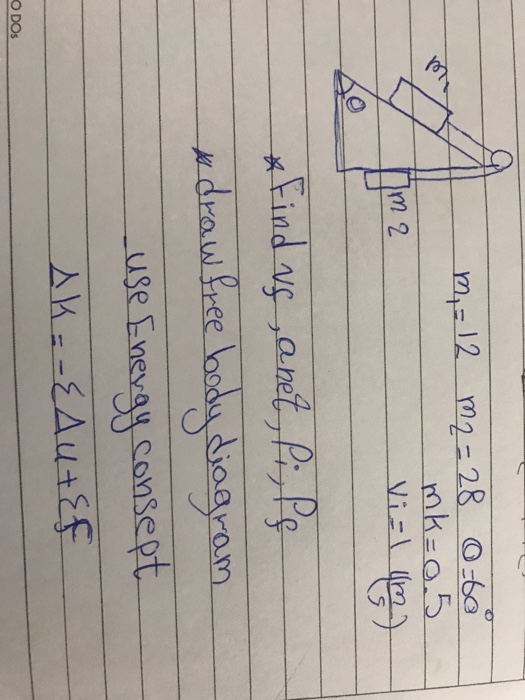 m1 = 12 m2 = 28 θ = 60°
mk = 0.5
vi = 1 (m/s)
m1
θ
m2
* Find vf, anet, Pi, Pf
* draw free body diagram
- use Energy consept
Δk = -ΣΔu + Σf
O DOs